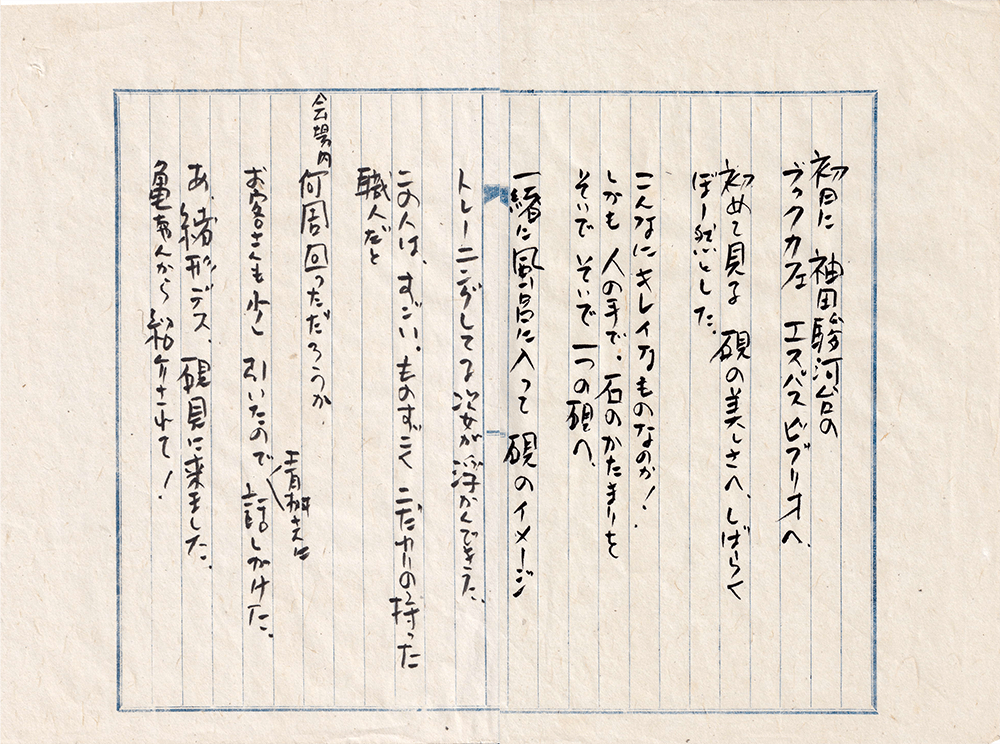 初日に 神田駿河台の
ブックカフェ エスパス ビブリオへ、
初めて見る 硯の美しさへ、しばらく
ぼー然とした。
こんなにキレイなものなのか!
しかも 人の手で。石のかたまりを
そいで そいで 一つの硯へ、
一緒に風呂に入って 硯のイメージ
トレーニングしてる 次女が 浮かんできた、
この人は、すごい。ものすごく こだわりの持った
職人だと
会場内 何周 回っただろうか
お客さんも 少し 引いたので 青栁さんに 話しかけた、
あ、緒形デス、硯見に来ました、
亀さんから 紹介されて!